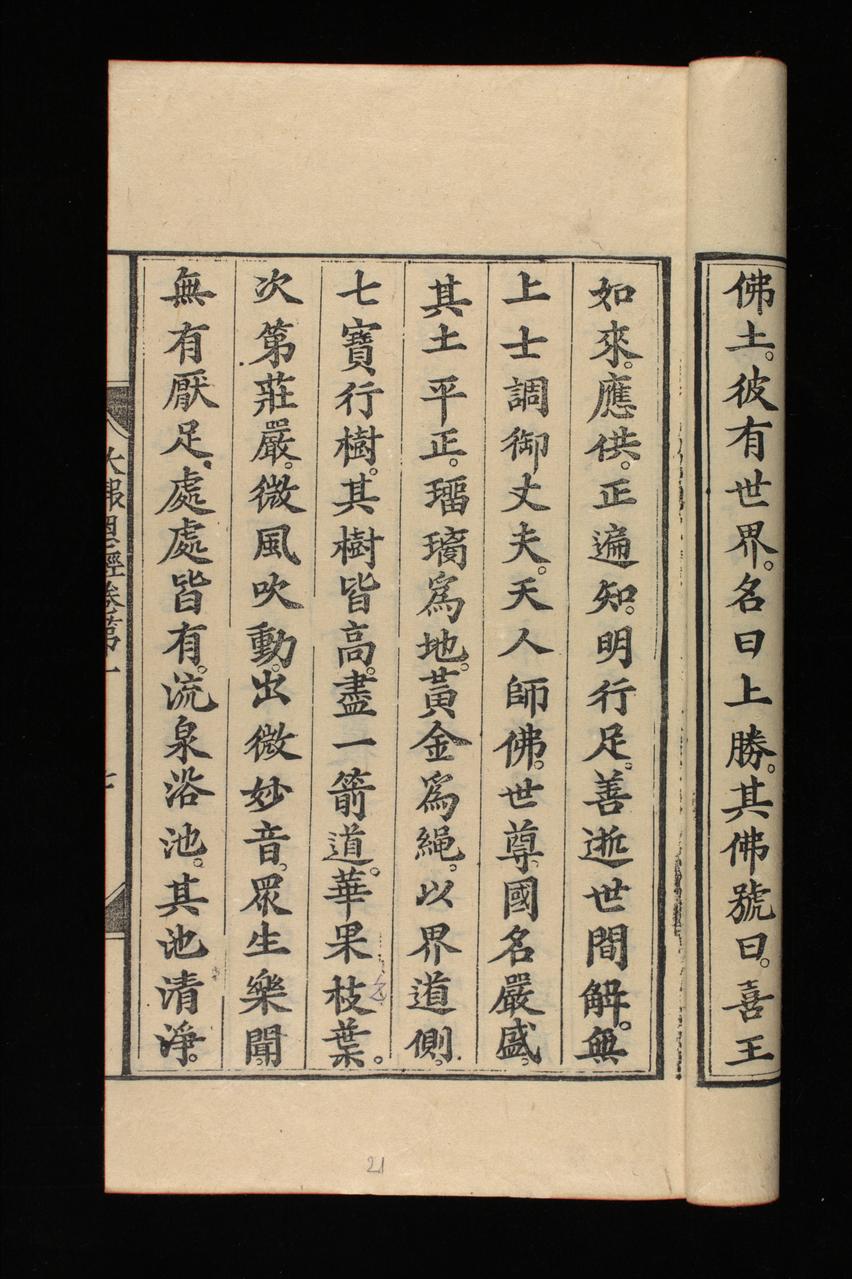 佛土。彼有世界。名曰上勝。其佛號曰。喜王
如來。應供。正遍知。明行足。善逝世間解。無
上士調御丈夫。天人師佛。世尊。國名嚴盛。
其土平正。瑠璃爲地。黃金爲繩。以界道側。
七寶行樹。其樹皆高。盡一箭道。華果枝葉。
次第莊嚴。微風吹動。出微妙音。眾生樂聞。
無有厭足。處處皆有。流泉浴池。其池清淨。
大報恩經卷第一
21